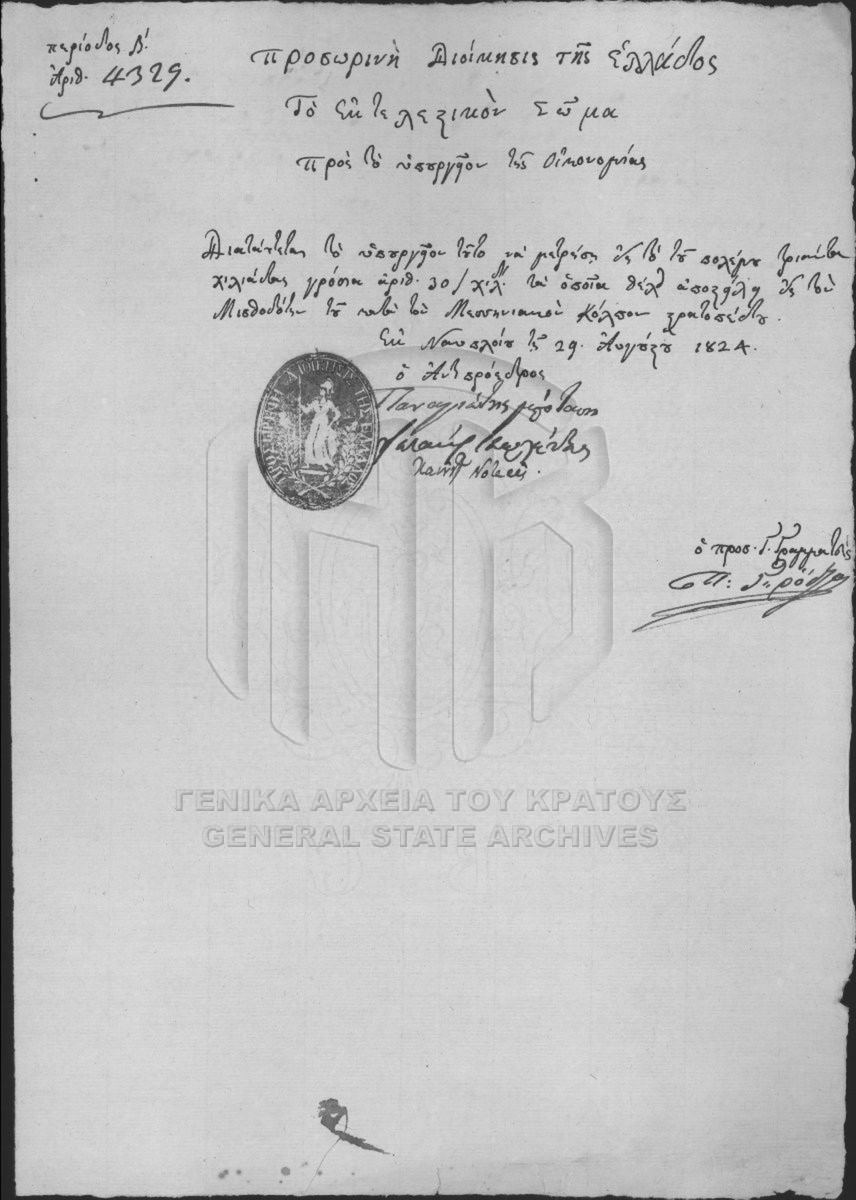 περίοδος Β΄.
Ἀριθ. 4329.
Προσωρινὴ Διοίκησις τῆς Ἑλλάδος
Τὸ Ἐκτελεστικὸν Σῶμα
Πρὸς τὸ ὑπουργεῖον τῆς Οἰκονομίας
Διατάττεται τὸ ὑπουργεῖον τοῦτο νὰ μετρήσῃ εἰς τὸ τοῦ πολέμου τριάντα
χιλιάδας γρόσια ἀριθ. 30/χιλ. τὰ ὁποῖα θέλει ἀποστείλῃ εἰς τὸν
Μισθοδότην τοῦ κατὰ τὸν Μεσσηνιακὸν Κόλπον στρατοπέδου.
Ἐκ Ναυπλίου τῇ 29. Αὐγούστου 1824.
ὁ Ἀντιπρόεδρος
Παναγιώτης μπόταση
Νοταρᾶς.
ΠΡΟΣΩΡΙΝΗ ΔΙΟΙΚΗΣΙΣ ΤΗΣ ΕΛΛΑΔΟΣ
ὁ προσ. Γ. Γραμματεὺς
ΓΕΝΙΚΑ ΑΡΧΕΙΑ ΤΟΥ ΚΡΑΤΟΥΣ
GENERAL STATE ARCHIVES